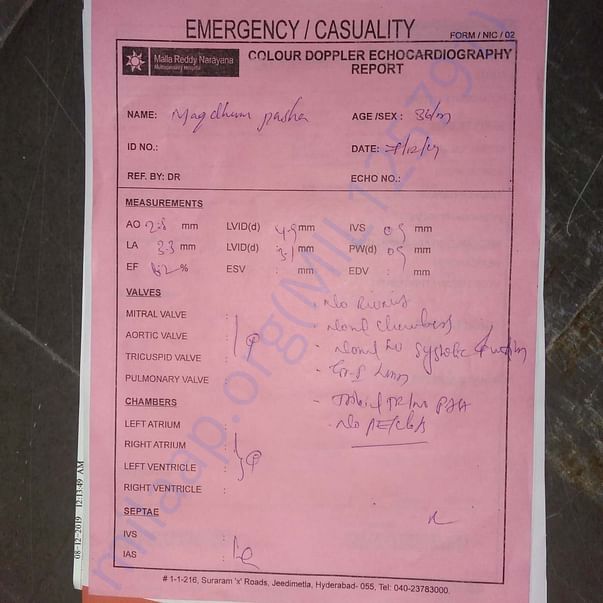 EMERGENCY / CASUALITY
FORM / NIC / 02
Malla Reddy Narayana
Multispeciality Hospital
COLOUR DOPPLER ECHOCARDIOGRAPHY
REPORT
NAME: Magdhum pasha AGE /SEX : 36/m
ID NO.: DATE:
REF. BY: DR ECHO NO.:
MEASUREMENTS
AO 2.8 mm LVID(d) 4.9 mm IVS 0.9 mm
LA 3.3 mm LVID(d) 3.1 mm PW(d) 0.9 mm
EF 62 % ESV : mm EDV : mm
VALVES
MITRAL VALVE :
AORTIC VALVE
TRICUSPID VALVE
PULMONARY VALVE :
- No RWMA
- Normal chambers
- Normal LV systolic function
- Gr-I
- No PE/clots
CHAMBERS
LEFT ATRIUM :
RIGHT ATRIUM
LEFT VENTRICLE
RIGHT VENTRICLE :
SEPTAE
IVS :
IAS :
# 1-1-216, Suraram 'x' Roads, Jeedimetla, Hyderabad- 055, Tel: 040-23783000.
08-12-2019 12:13:49 AM
milaap.org(MIL125791)